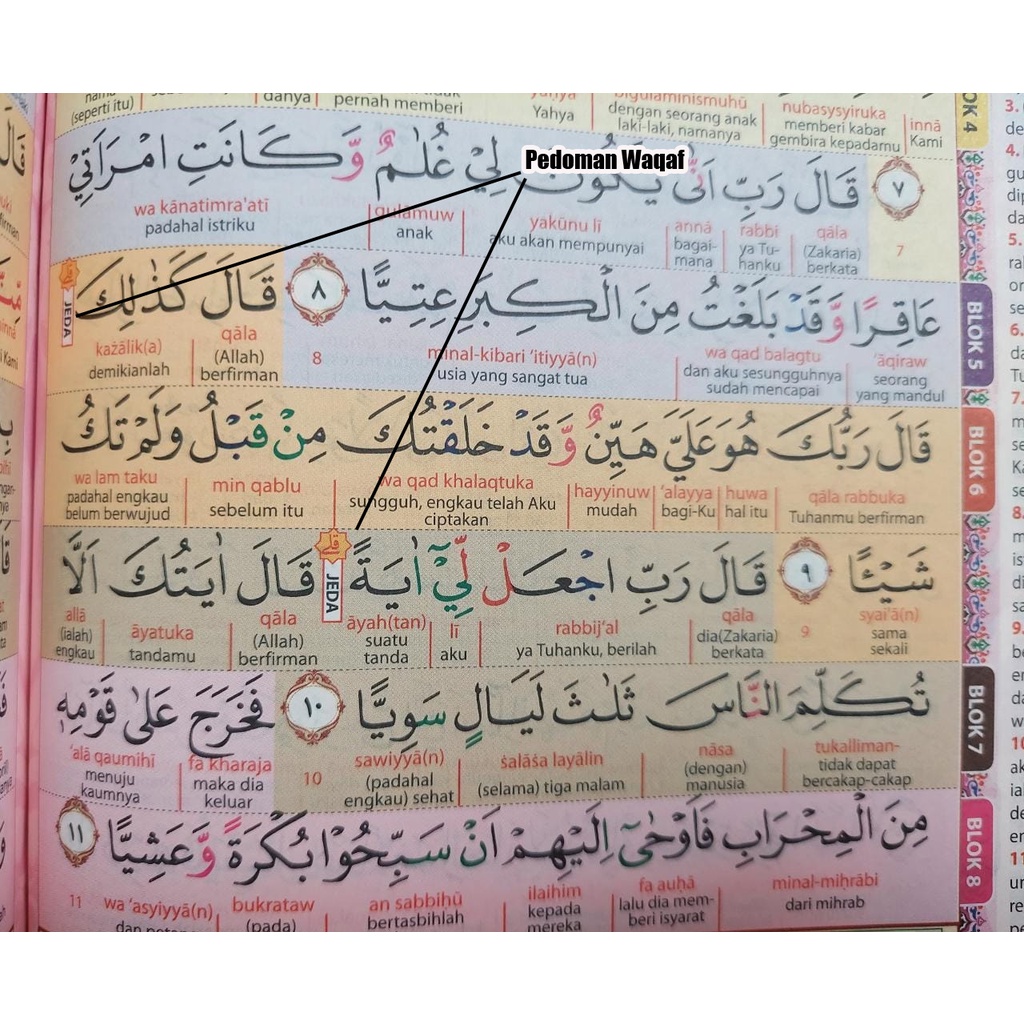 (seperti itu) danya pernah memberi Yahya dengan seorang anak laki-laki, namanya nubasysyiruka memberi kabar gembira kepadamu innā Kami
Pedoman Waqaf
قَالَ رَبِّ اَنّٰى يَكُوْنُ لِيْ غُلٰمٌ وَّكَانَتِ امْرَاَتِيْ
wa kānatimra'atī gulāmuw yakūnu lī annā rabbi qāla
padahal istriku anak aku akan mempunyai bagai-mana ya Tu-hanku (Zakaria) berkata 7
عَاقِرًا وَّقَدْ بَلَغْتُ مِنَ الْكِبَرِ عِتِيًّا ٨ قَالَ كَذٰلِكَ
JEDA
każālik(a) qāla 8 minal-kibari 'itiyyā(n) wa qad balagtu 'āqiraw
demikianlah (Allah) berfirman usia yang sangat tua dan aku sesungguhnya sudah mencapai seorang yang mandul
BLOK 5
قَالَ رَبُّكَ هُوَ عَلَيَّ هَيِّنٌ وَّقَدْ خَلَقْتُكَ مِنْ قَبْلُ وَلَمْ تَكُ
wa lam taku min qablu wa qad khalaqtuka hayyinuw 'alayya huwa qāla rabbuka
padahal engkau belum berwujud sebelum itu sungguh, engkau telah Aku ciptakan mudah bagi-Ku hal itu Tuhanmu berfirman
BLOK 6
شَيْـًٔا ٩ قَالَ رَبِّ اجْعَلْ لِّيْٓ اٰيَةً ۗ قَالَ اٰيَتُكَ اَلَّا
JEDA
allā āyatuka qāla āyah(tan) lī rabbij'al qāla 9 syai'ā(n)
(ialah) engkau tandamu (Allah) berfirman suatu tanda aku ya Tuhanku, berilah dia(Zakaria) berkata sama sekali
تُكَلِّمَ النَّاسَ ثَلٰثَ لَيَالٍ سَوِيًّا ١٠ فَخَرَجَ عَلٰى قَوْمِهٖ
BLOK 7
'alā qaumihī fa kharaja 10 sawiyyā(n) śalāśa layālin nāsa tukalliman-
menuju kaumnya maka dia keluar (padahal engkau) sehat (selama) tiga malam (dengan) manusia tidak dapat bercakap-cakap
مِنَ الْمِحْرَابِ فَاَوْحٰٓى اِلَيْهِمْ اَنْ سَبِّحُوْا بُكْرَةً وَّعَشِيًّا ١١
BLOK 8
11 wa 'asyiyyā(n) bukrataw an sabbiḥū ilaihim fa auḥā minal-miḥrābi
(pada) bertasbihlah kepada mereka lalu dia mem-beri isyarat dari mihrab